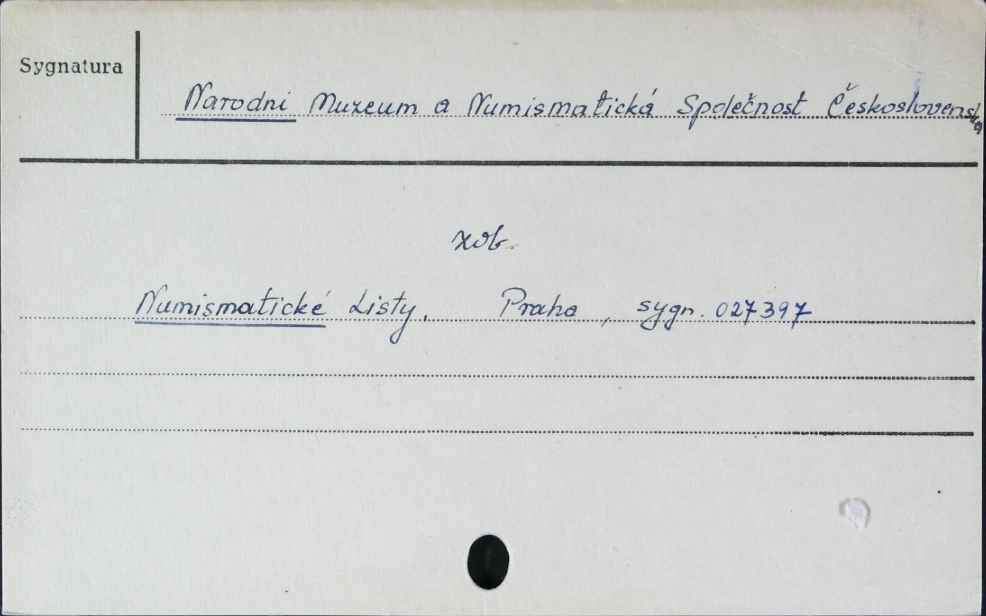 Sygnatura
Narodni Muzeum a Numismatická Společnost Československa
zob.
Numismatické Listy, Praha, sygn. 027397